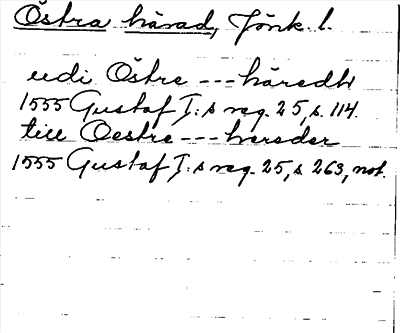 Östra härad, Jönk. l.
udi Östre --- häredh
1555 Gustaf I:s reg. 25, s. 114.
till Oestre --- hereder
1555 Gustaf I:s reg. 25, s. 263, not.